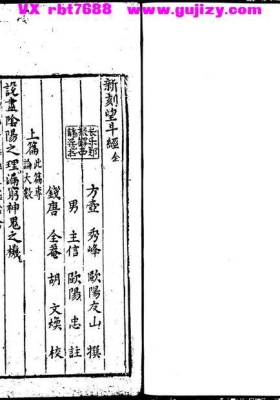 VX rbt7688 www.gujizy.com
新刻望斗經全
方壺 秀峰 歐陽友山 撰
男 主信 歐陽 忠 註
錢唐 全菴 胡 文煥 校
上篇此篇專論大數
設盡陰陽之理漏窮神鬼之機